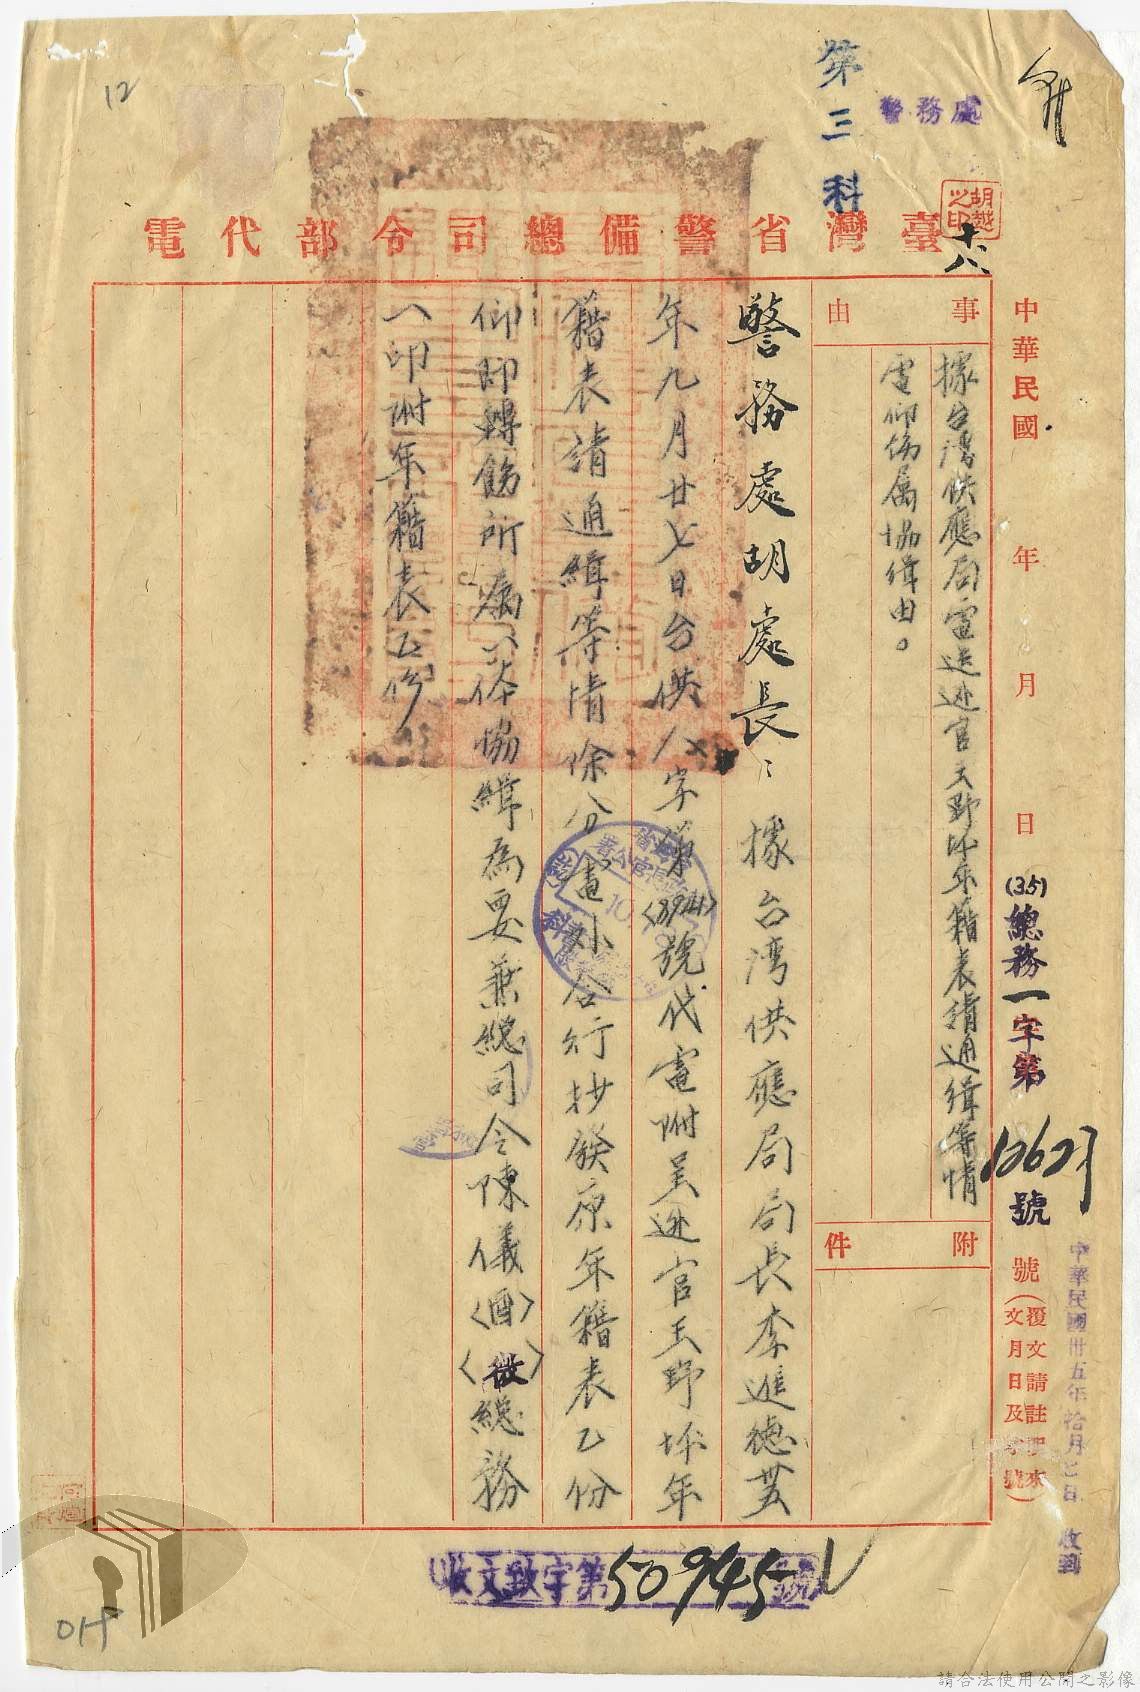 12
第三科
警務處
胡越之印
十八
臺灣省警備總司令部代電
中華民國 年 月 日
(35)總務一字第
號
號(覆文請註明來文月日及號)
中華民國卅五年拾月七日 收到
事由
據台灣供應局電送逃官王野坏年籍表請通緝等情
電仰飭属協緝由。
附件
警務處胡處長:據台灣供應局局長李進德卅
年九月廿七日台供人字第(3914)號代電附呈逃官王野坏年
籍表請通緝等情除分電外合行抄發原年籍表乙份
仰即轉飭所属一体協緝為要兼總司令陳儀(酉)(微)總務
一印附年籍表乙份
收文致字第50945號
請合法使用公開之影像